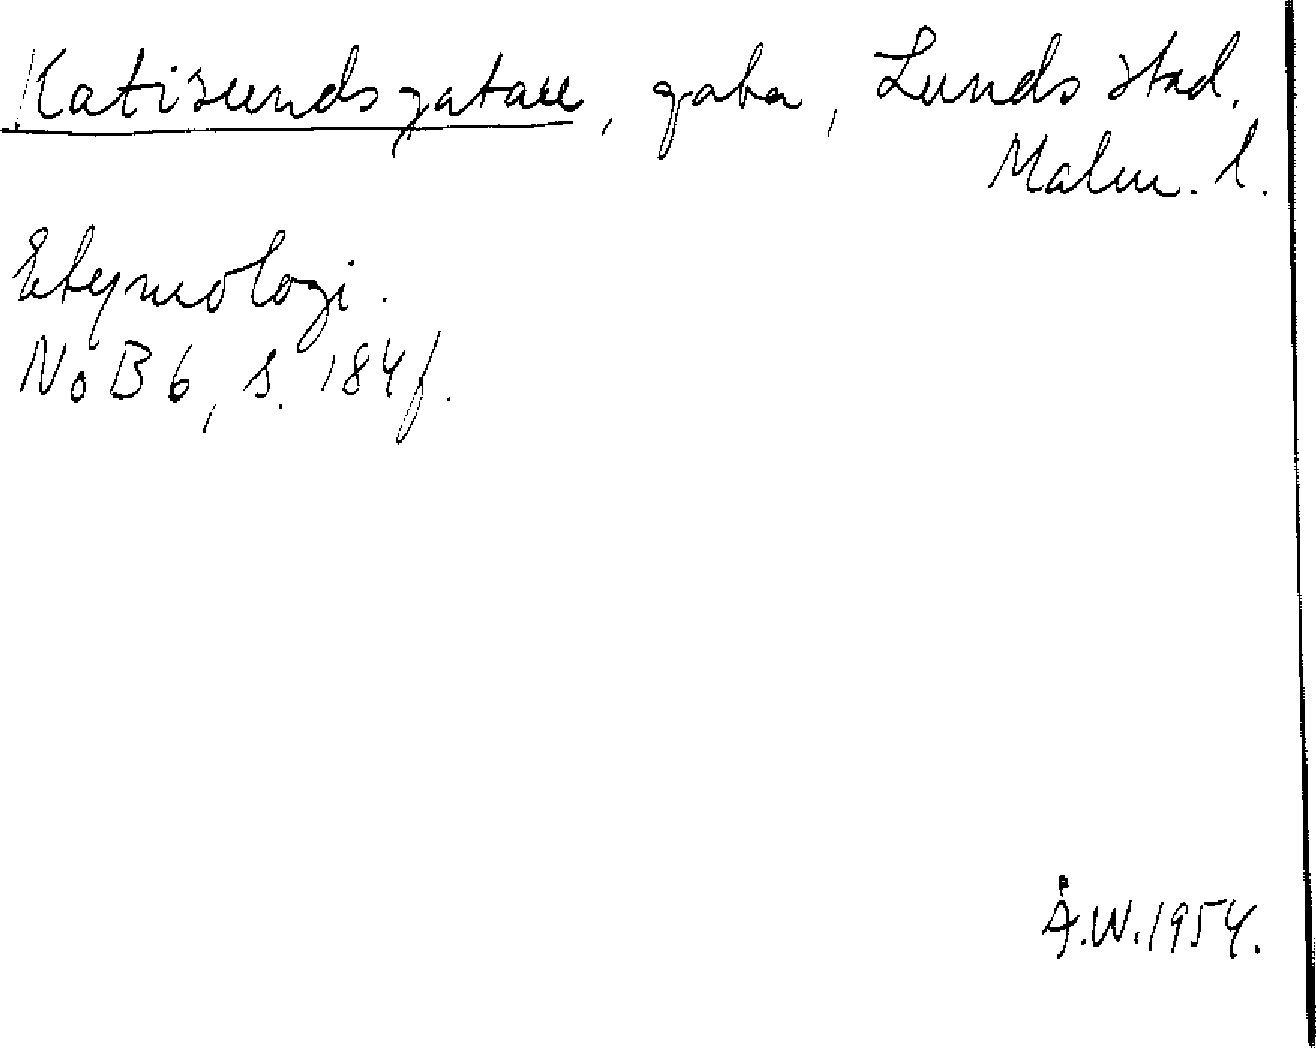 Katisundsgatan, gata, Lunds stad.
Malm. l.
Etymologi.
NoB 6, s. 184 f.
Å.W. 1954.